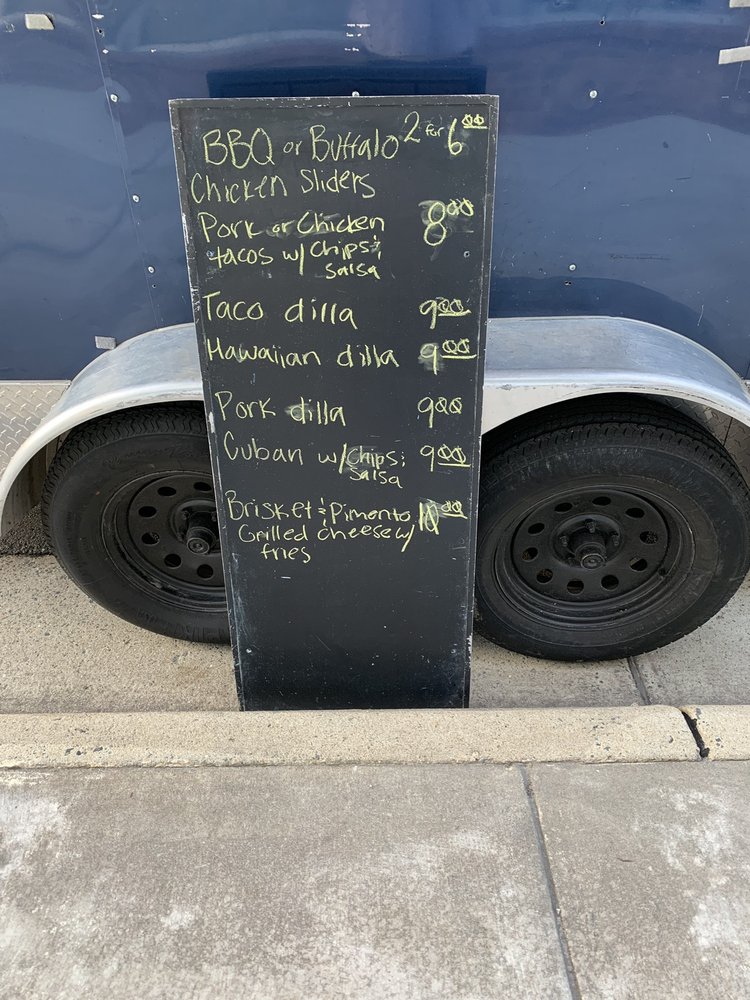 BBQ or Buffalo 2 for 6.00
Chicken Sliders
Pork or Chicken 8.00
tacos w/ chips &
salsa
Taco dilla 9.00
Hawaiian dilla 9.00
Pork dilla 9.00
Cuban w/ chips & 9.00
salsa
Brisket & Pimento 10.00
Grilled cheese w/
fries